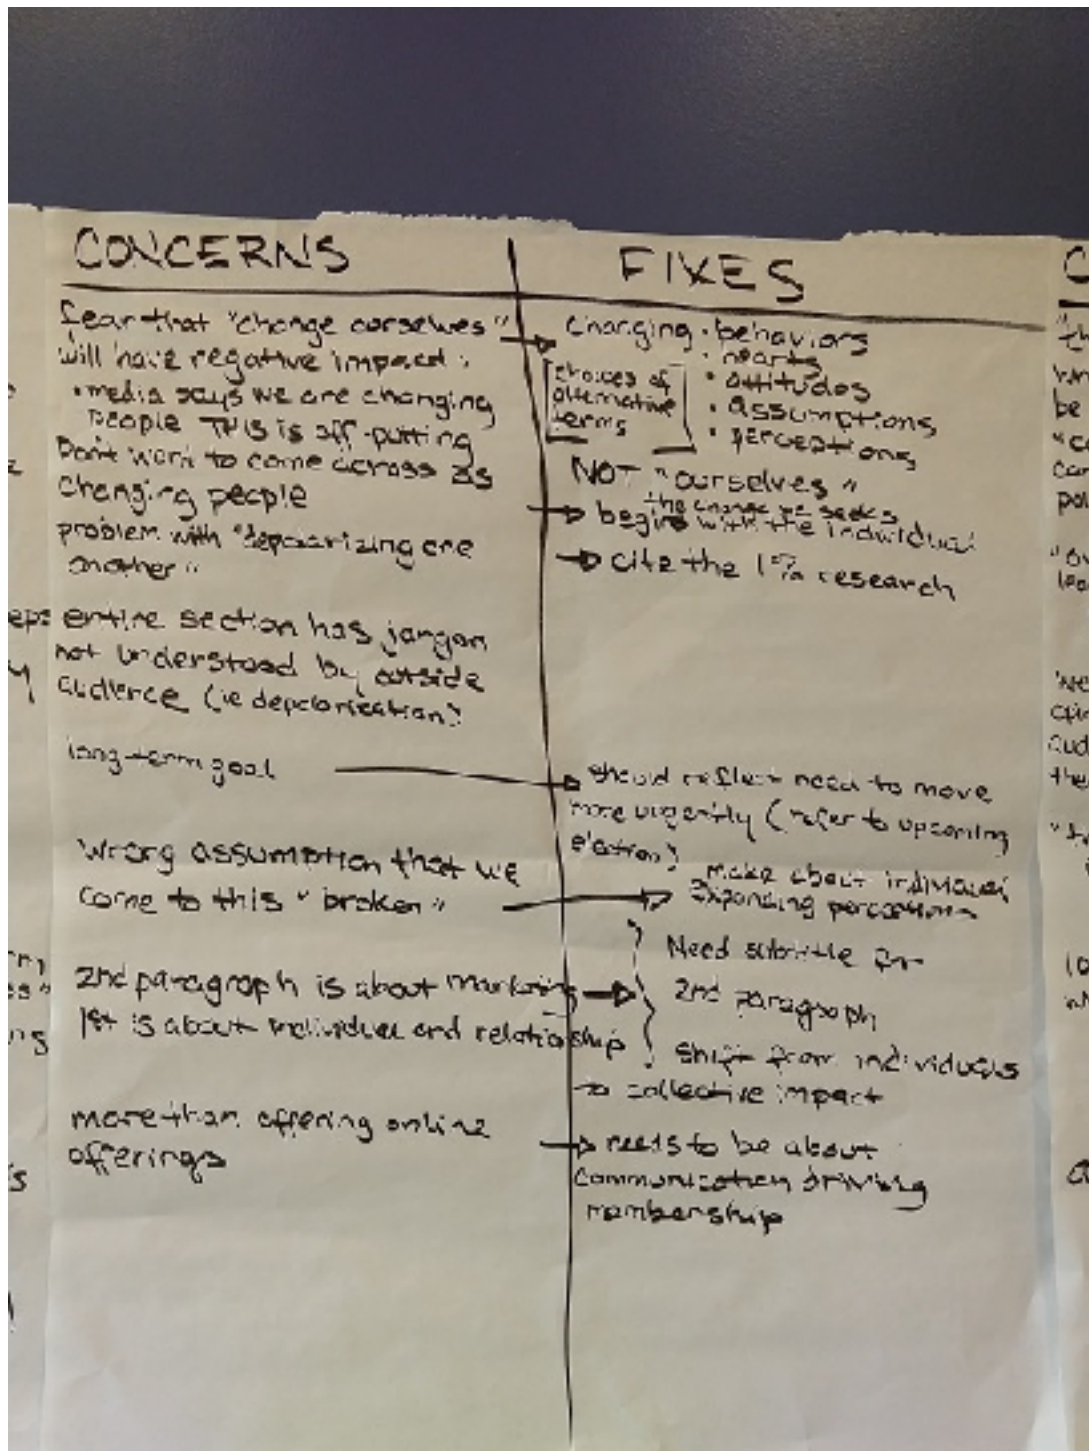 CONCERNS
fear that "change ourselves"
will have negative impact.
• media says we are changing
people THIS is off-putting
Don't want to come across as
changing people
problem with "depolarizing one
another"
entire section has jargon
not understood by outside
audience (ie depolarization)
long-term goal
Wrong assumption that we
come to this "broken"
2nd paragraph is about marketing
1st is about individual and relationship
more than offering online
offerings
FIXES
changing • behaviors
• hearts
• attitudes
• assumptions
• perceptions
[choices of
alternative
terms]
NOT "ourselves"
the change we seeks
begins with the individual
cite the 1% research
should reflect need to move
more urgently (refer to upcoming
election)
make about individual
expanding perceptions
Need subtitle for
2nd paragraph
shift from individuals
to collective impact
needs to be about
communication driving
membership